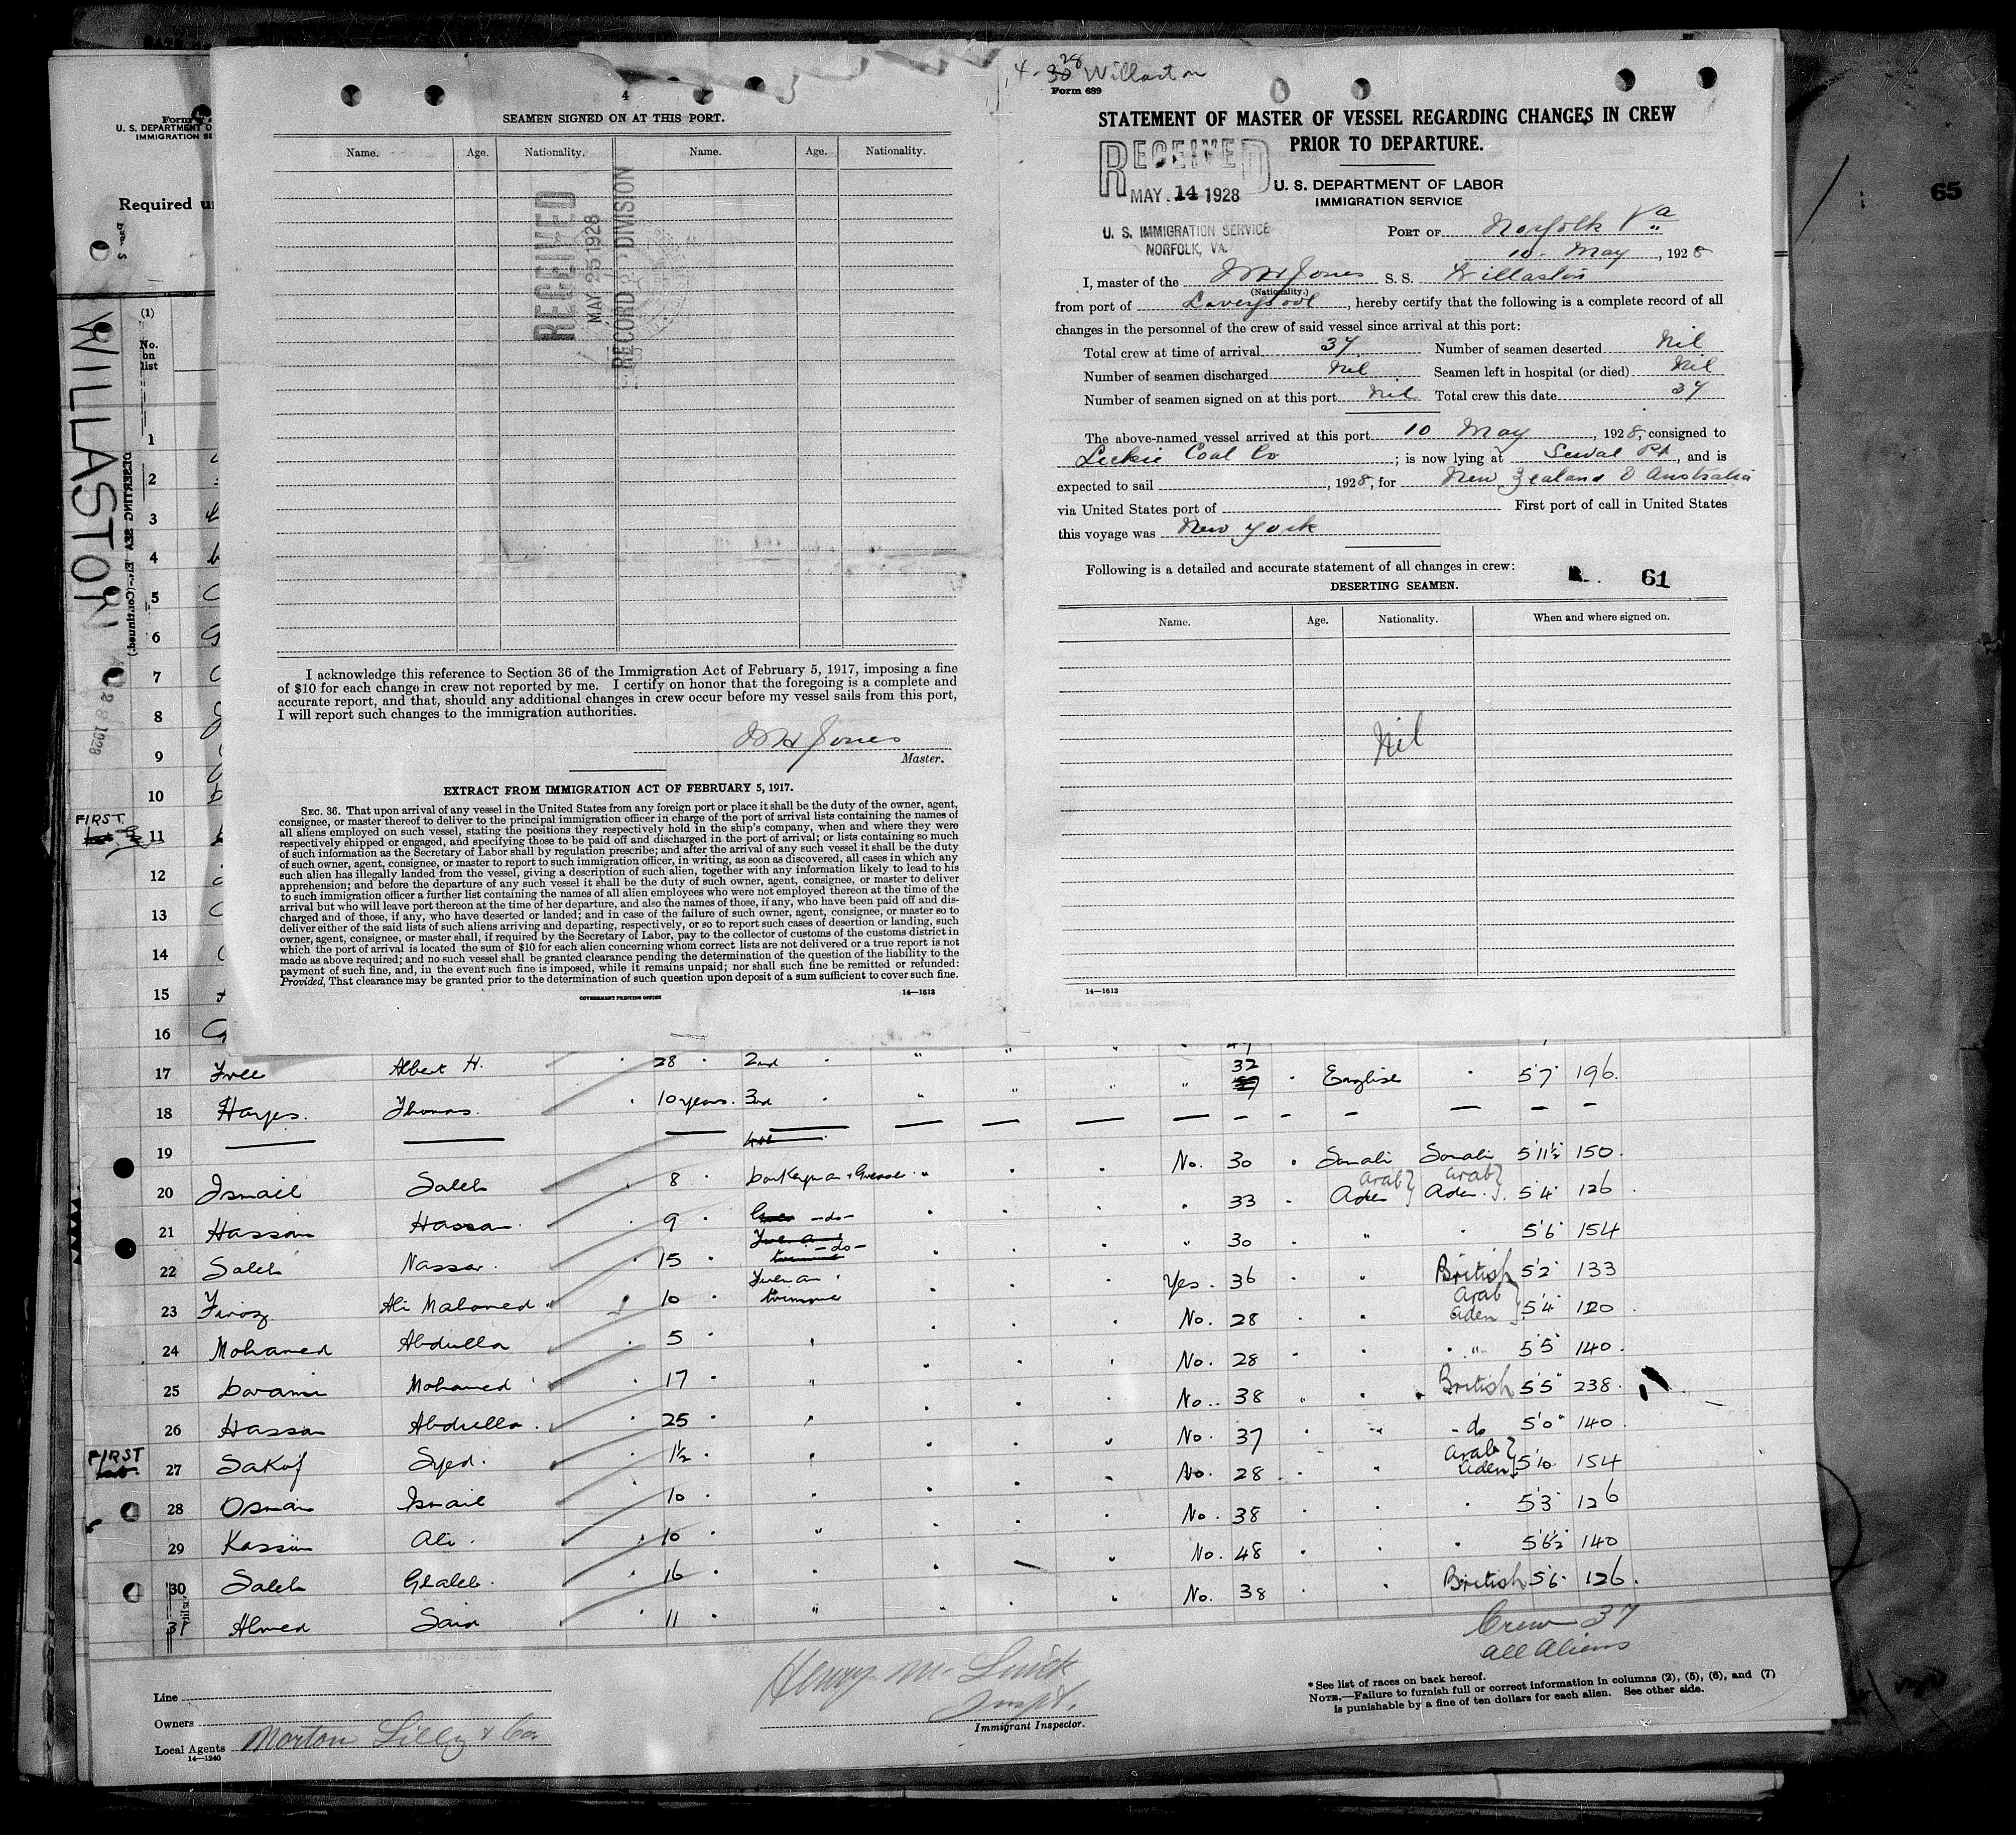 65
Form
U. S. DEPARTMENT O
IMMIGRATION SE
Required u
WILLASTON
28 1928
DESERTING SEA
(Continued.)
(1)
No.
on
list
1
2
3
4
5
6
7
8
9
10
FIRST
11
12
13
14
15
16
4
SEAMEN SIGNED ON AT THIS PORT.
Name. Age. Nationality. Name. Age. Nationality.
RECEIVED
MAY 25 1928
RECORD DIVISION
I acknowledge this reference to Section 36 of the Immigration Act of February 5, 1917, imposing a fine
of $10 for each change in crew not reported by me. I certify on honor that the foregoing is a complete and
accurate report, and that, should any additional changes in crew occur before my vessel sails from this port,
I will report such changes to the immigration authorities.
Jones
Master.
EXTRACT FROM IMMIGRATION ACT OF FEBRUARY 5, 1917.
SEC. 36. That upon arrival of any vessel in the United States from any foreign port or place it shall be the duty of the owner, agent,
consignee, or master thereof to deliver to the principal immigration officer in charge of the port of arrival lists containing the names of
all aliens employed on such vessel, stating the positions they respectively hold in the ship's company, when and where they were
respectively shipped or engaged, and specifying those to be paid off and discharged in the port of arrival; or lists containing so much
of such information as the Secretary of Labor shall by regulation prescribe; and after the arrival of any such vessel it shall be the duty
of such owner, agent, consignee, or master to report to such immigration officer, in writing, as soon as discovered, all cases in which any
such alien has illegally landed from the vessel, giving a description of such alien, together with any information likely to lead to his
apprehension; and before the departure of any such vessel it shall be the duty of such owner, agent, consignee, or master to deliver
to such immigration officer a further list containing the names of all alien employees who were not employed thereon at the time of the
arrival but who will leave port thereon at the time of her departure, and also the names of those, if any, who have been paid off and dis-
charged and of those, if any, who have deserted or landed; and in case of the failure of such owner, agent, consignee, or master so to
deliver either of the said lists of such aliens arriving and departing, respectively, or so to report such cases of desertion or landing, such
owner, agent, consignee, or master shall, if required by the Secretary of Labor, pay to the collector of customs of the customs district in
which the port of arrival is located the sum of $10 for each alien concerning whom correct lists are not delivered or a true report is not
made as above required; and no such vessel shall be granted clearance pending the determination of the question of the liability to the
payment of such fine, and, in the event such fine is imposed, while it remains unpaid; nor shall such fine be remitted or refunded:
Provided, That clearance may be granted prior to the determination of such question upon deposit of a sum sufficient to cover such fine.
GOVERNMENT PRINTING OFFICE 14—1613
28 Willaston
Form 689
STATEMENT OF MASTER OF VESSEL REGARDING CHANGES IN CREW
PRIOR TO DEPARTURE.
RECEIVED
MAY 14 1928
U. S. IMMIGRATION SERVICE
NORFOLK, VA.
U. S. DEPARTMENT OF LABOR
IMMIGRATION SERVICE
PORT OF Norfolk Va
10 May, 1928
I, master of the Jones S. S. Willaston
(Nationality.)
from port of Liverpool, hereby certify that the following is a complete record of all
changes in the personnel of the crew of said vessel since arrival at this port:
Total crew at time of arrival 37 Number of seamen deserted Nil
Number of seamen discharged Nil Seamen left in hospital (or died) Nil
Number of seamen signed on at this port Nil Total crew this date 37
The above-named vessel arrived at this port 10 May, 1928, consigned to
Leckie Coal Co; is now lying at Sewal Pt, and is
expected to sail , 1928, for New Zealand & Australia
via United States port of First port of call in United States
this voyage was New York
Following is a detailed and accurate statement of all changes in crew:
61
DESERTING SEAMEN.
Name. Age. Nationality. When and where signed on.
Nil
14—1613
17 Free Albert H. 28 2nd 32 English 5'7" 196
18 Hayes Thomas 10 years 3rd
19
20 Ismail Saleh 8 Donkeyman & Greaser No. 30 Somali Somali 5'11½ 150
21 Hassan Hassan 9 -do- 33 Arab Aden Arab Aden 5'4" 126
22 Saleh Nassar 15 -do- 30 " 5'6" 154
23 Firoz Ali Mahomed 10 Fireman trimmer Yes 36 " British 5'2" 133
24 Mohamed Abdulla 5 No. 28 Arab Aden 5'4" 120
25 Mohamed 17 " No. 28 " 5'5" 140
26 Hassan Abdulla 25 No. 38 British 5'5" 238
FIRST
27 Sakof Syed 1½ No. 37 -do 5'0" 140
28 Osman Ismail 10 No. 28 Arab Aden 5'10 154
29 Kassim Ali 10 " No. 38 5'3" 126
30 Saleh Ghaleb 16 No. 48 5'6½ 140
31 Ahmed Said 11 " No. 38 British 5'6" 126
Crew 37
all Aliens
Line
Owners
Local Agents Morton Lilly & Co.
14—1240
Henry M.
Inspt.
Immigrant Inspector.
* See list of races on back hereof.
NOTE.—Failure to furnish full or correct information in columns (2), (5), (6), and (7)
is punishable by a fine of ten dollars for each alien. See other side.